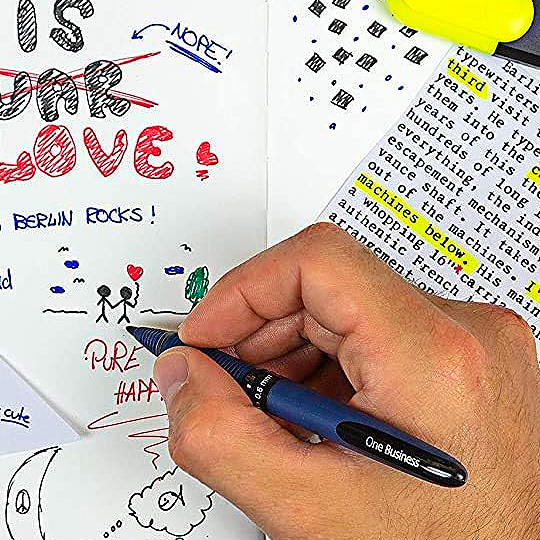 IS
WAR
NOPE!
LOVE!
BERLIN ROCKS!
PURE
HAPP
cute
0.6 mm
One Business
Earli
typewriters
third visit
years. He type
them into the c
years of this th
hundreds of long l
everything, the ind
escapement mechanism
vance shaft. It takes
out of the machines. I
machines below. His main
whopping 16"* carri
authentic French
arrangement